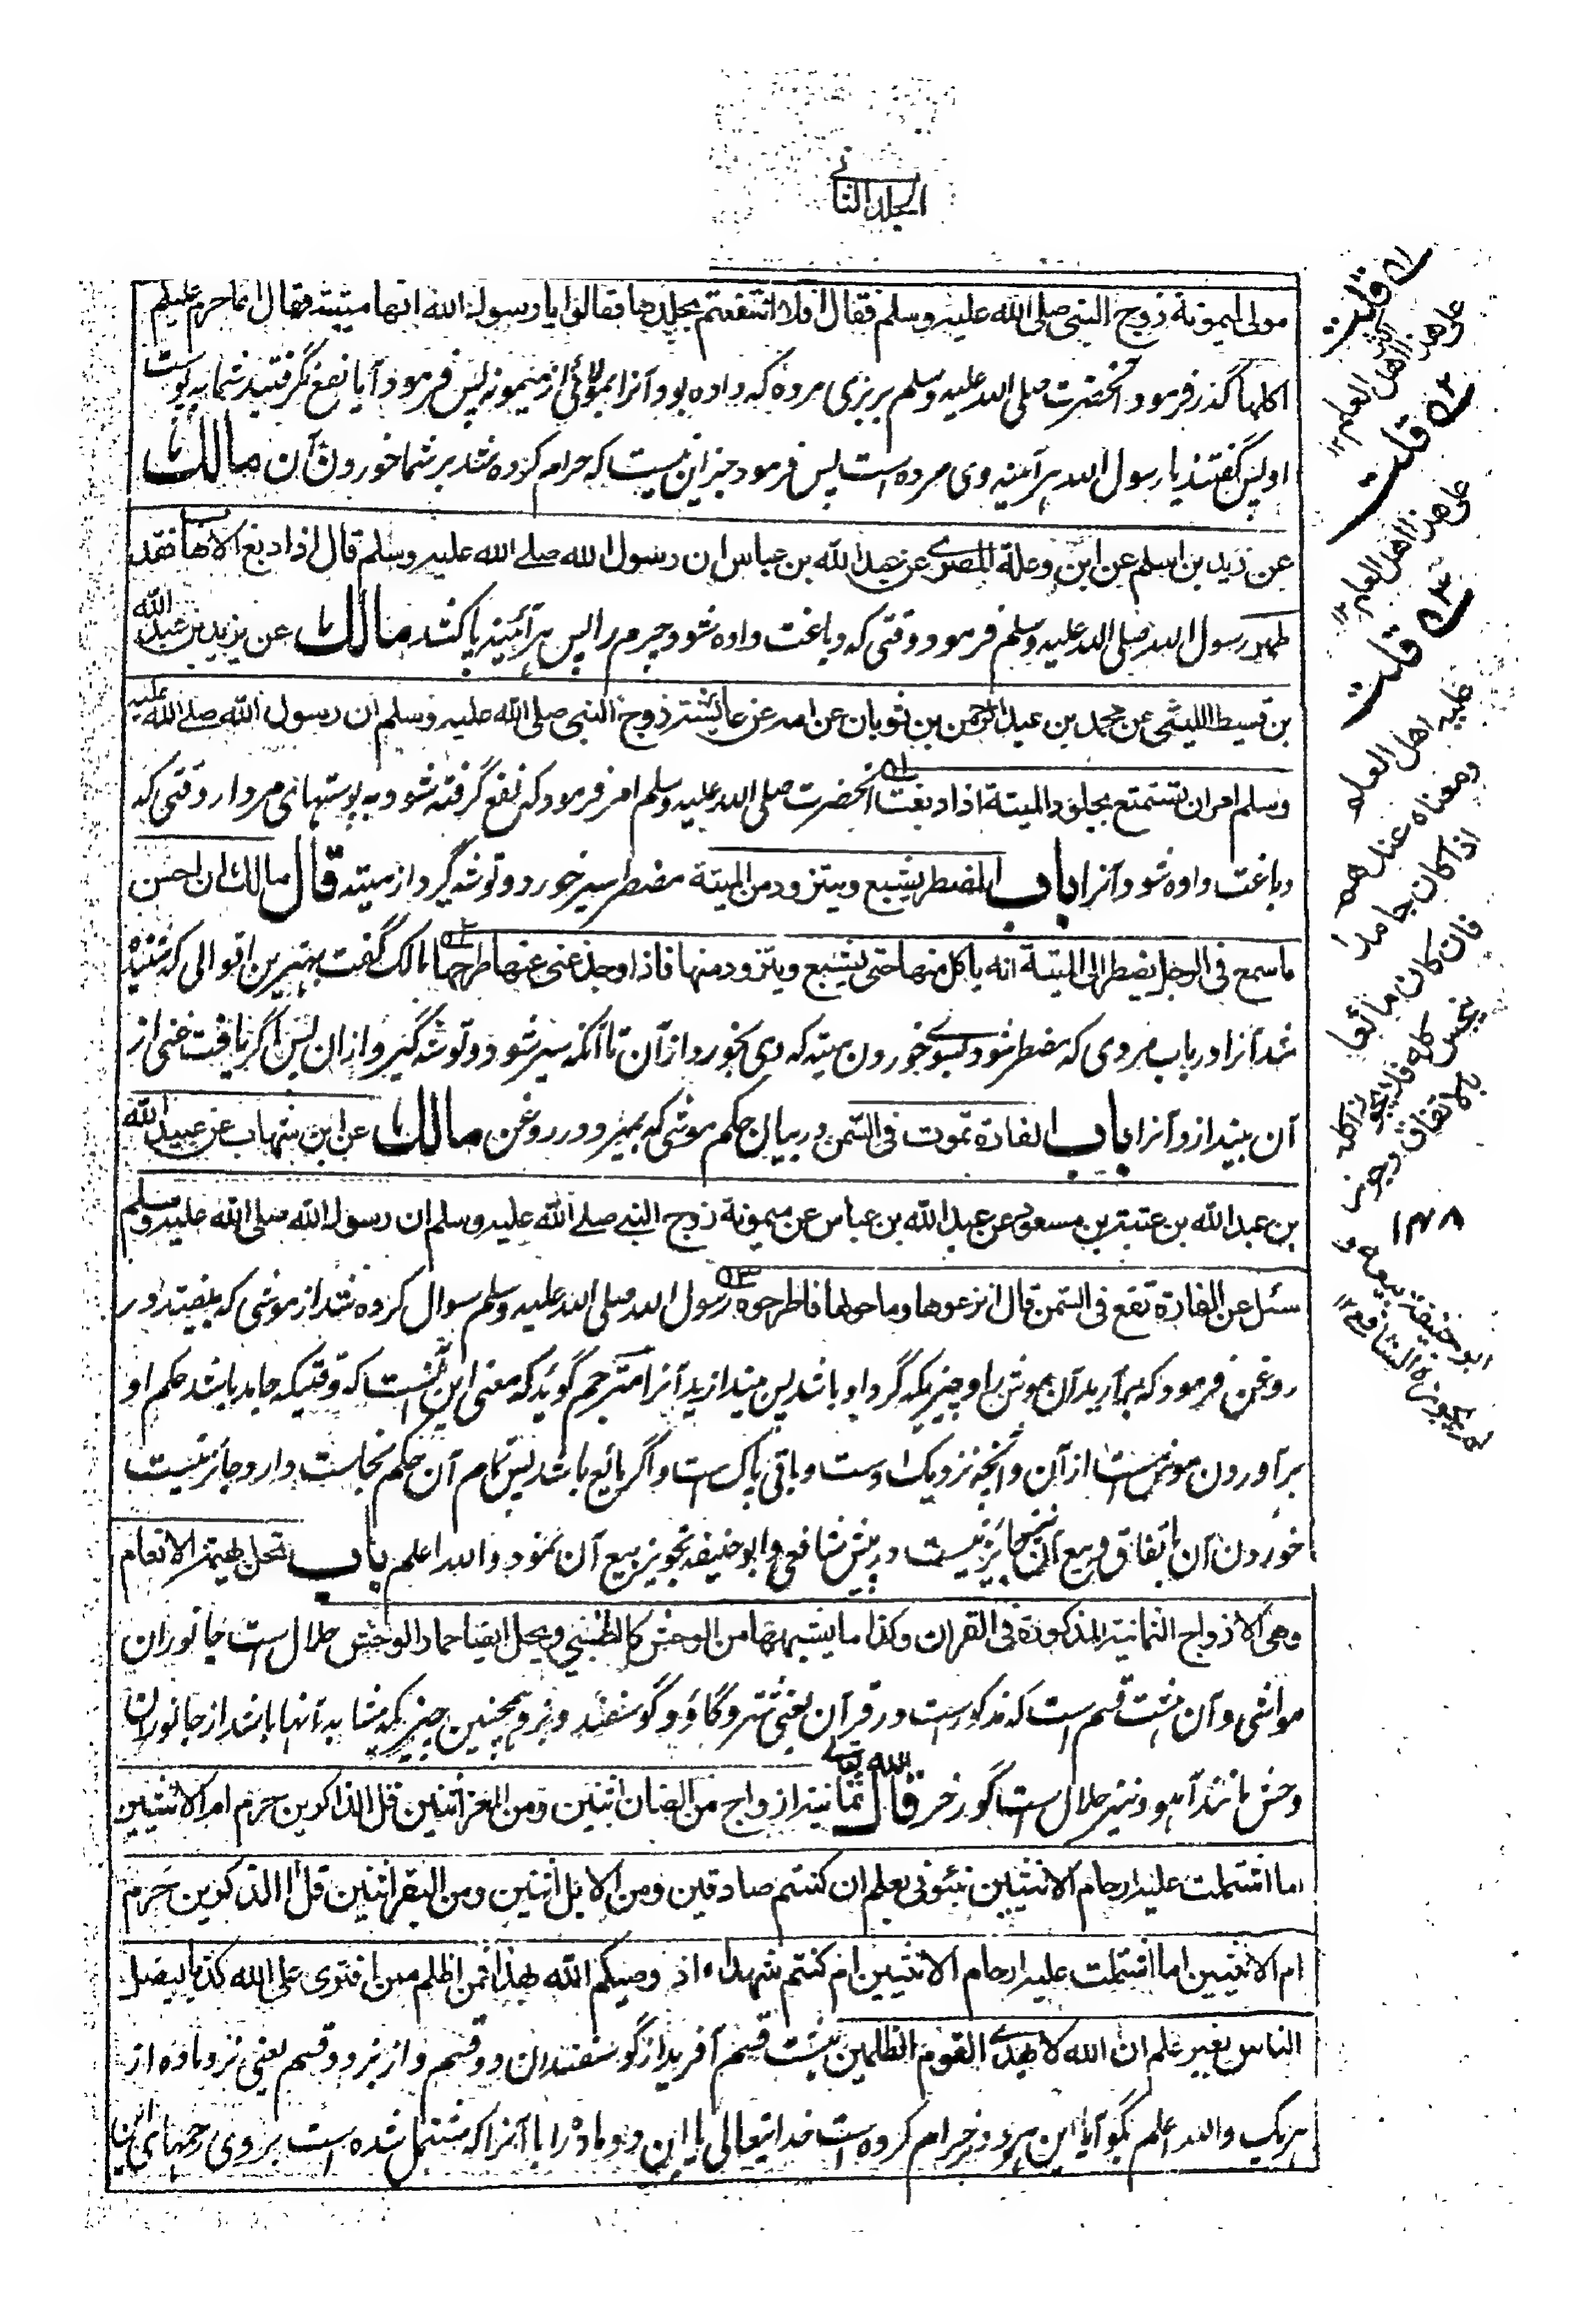 المجلد الثانی
مولی لمیمونة زوج النبی صلی الله علیه وسلم فقال افلا انتفعتم بجلدها فقالوا یا رسول الله انها میتة فقال انما حرم علیکم
اکلها گذر فرمود آنحضرت صلی الله علیه وسلم بر بزی مرده که داده بود آنرا بمولائی از میمونه پس فرمود آیا نفع نگرفتید شما به پوست
او پس گفتند یا رسول الله هر آئینه وی مرده است پس فرمود جز این نیست که حرام کرده شد بر شما خوردن آن مالك
عن زید بن اسلم عن ابن وعلة المصری عن عبد الله بن عباس ان رسول الله صلے الله علیه وسلم قال اذا دبغ الاهاب فقد
طهر رسول الله صلی الله علیه وسلم فرمود وقتی که دباغت داده شود چرم را پس هر آئینه پاک شد مالك عن یزید بن عبد الله
بن قسیط اللیثی عن محمد بن عبد الرحمن بن ثوبان عن امه عن عائشة زوج النبی صلی الله علیه وسلم ان رسول الله صلے الله علیه
وسلم امر ان یستمتع بجلود المیتة اذا دبغت ٥١ آنحضرت صلی الله علیه وسلم امر فرمود که نفع گرفته شود به پوستهای مردار وقتی که
دباغت داده شود آنرا باب المضطر یشبع ویتزود من المیتة مضطر سیر خورد و توشه گیرد از میته قال مالك ان احسن
ما سمع فی الرجل یضطر الی المیتة انه یاکل منها حتی یشبع ویتزود منها فاذا وجد غنی عنها طرحها ٥٢ مالک گفت بهترین اقوالی که شنیده
شد آنرا در باب مردی که مضطر شود بسوے خوردن میته که وی بخورد از آن تا آنکه سیر شود و توشه گیرد از ان پس اگر یافت غنی از
آن بیندازد آنرا باب الفارة تموت فی السمن در بیان حکم موشی که بمیرد در روغن مالك عن ابن شهاب عن عبید الله
بن عبد الله بن عتبة بن مسعود عن عبد الله بن عباس عن میمونة زوج النبے صلے الله علیه وسلم ان رسول الله صلی الله علیه وسلم
سئل عن الفارة تقع فی السمن فقال انزعوها وما حولها فاطرحوه ٥٣ رسول الله صلی الله علیه وسلم سوال کرده شد از موشی که بیفتد در
روغن فرمود که برآرید آن موش را و چیزیکه گرد او باشد پس بیندازید آنرا مترجم گوید که معنی این آنست که وقتیکه جامد باشد حکم او
برآوردن موش است از آن و آنچه نزدیک اوست و باقی پاک است و اگر مائع باشد پس تمام آن حکم نجاست دارد و جائز نیست
خوردن آن باتفاق و بیع آن نیز جائز نیست در پیش شافعی و ابو حنیفه تجویز بیع آن نمود والله اعلم باب تحل بهیمة الانعام
وهی الازواج الثمانیة المذکورة فی القران وکذا ما یشبهها من الوحش کالظبی ویحل ایضا حمار الوحش حلال است جانوران
مواشی و آن هشت قسم است که مذکورست در قرآن یعنی شتر و گاو و گوسفند و بز و همچنین چیزیکه مشابه آنها باشد از جانوران
وحش مانند آهو و نیز حلال است گورخر قال الله تعالے ثمانیة ازواج من الضان اثنین ومن المعز اثنین قل الذاکرین حرم ام الانثیین
اما اشتملت علیه ارحام الانثیین نبئونی بعلم ان کنتم صادقین ومن الابل اثنین ومن البقر اثنین قل ءاالذکرین حرم
ام الانثیین اما اشتملت علیه ارحام الانثیین ام کنتم شهداء اذ وصیکم الله بهذا فمن اظلم ممن افتری علی الله کذبا لیضل
الناس بغیر علم ان الله لا یهدی القوم الظلمین هشت قسم آفرید از گوسفندان دو قسم و از بز دو قسم یعنی نر و ماده از
هر یک والله اعلم بگو آیا این هر دو نر حرام کرده است خدایتعالی یا این دو ماده را یا آنرا که مشتمل شده است بر وی رحمهای این
٥١ قلت
علی هذا اکثر اهل العلم ١٢
٥٢ قلت
علی هذا اهل العلم ١٢
٥٣ قلت
علیه اهل العلم
ومعناه عندهم
اذا کان جامدا
فان کان مائعا
ینجس کله فلا یجوز اکله
بالاتفاق وجوز
١٣٨
ابو حنیفة بیعه و
لم یجوزه الشافعی ١٢